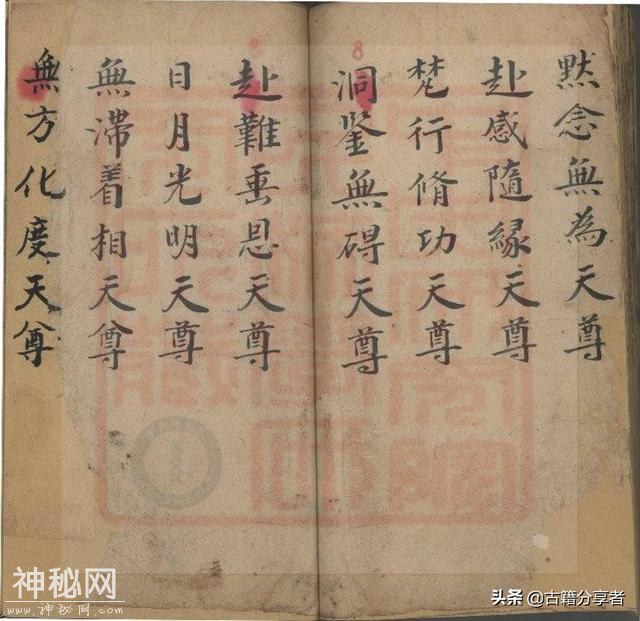 8
默念無為天尊
赴感隨緣天尊
梵行脩功天尊
洞鉴無碍天尊
赴難垂恩天尊
日月光明天尊
無滯着相天尊
無方化度天尊
神秘网
www.神秘网.com
头条 @古籍分享者